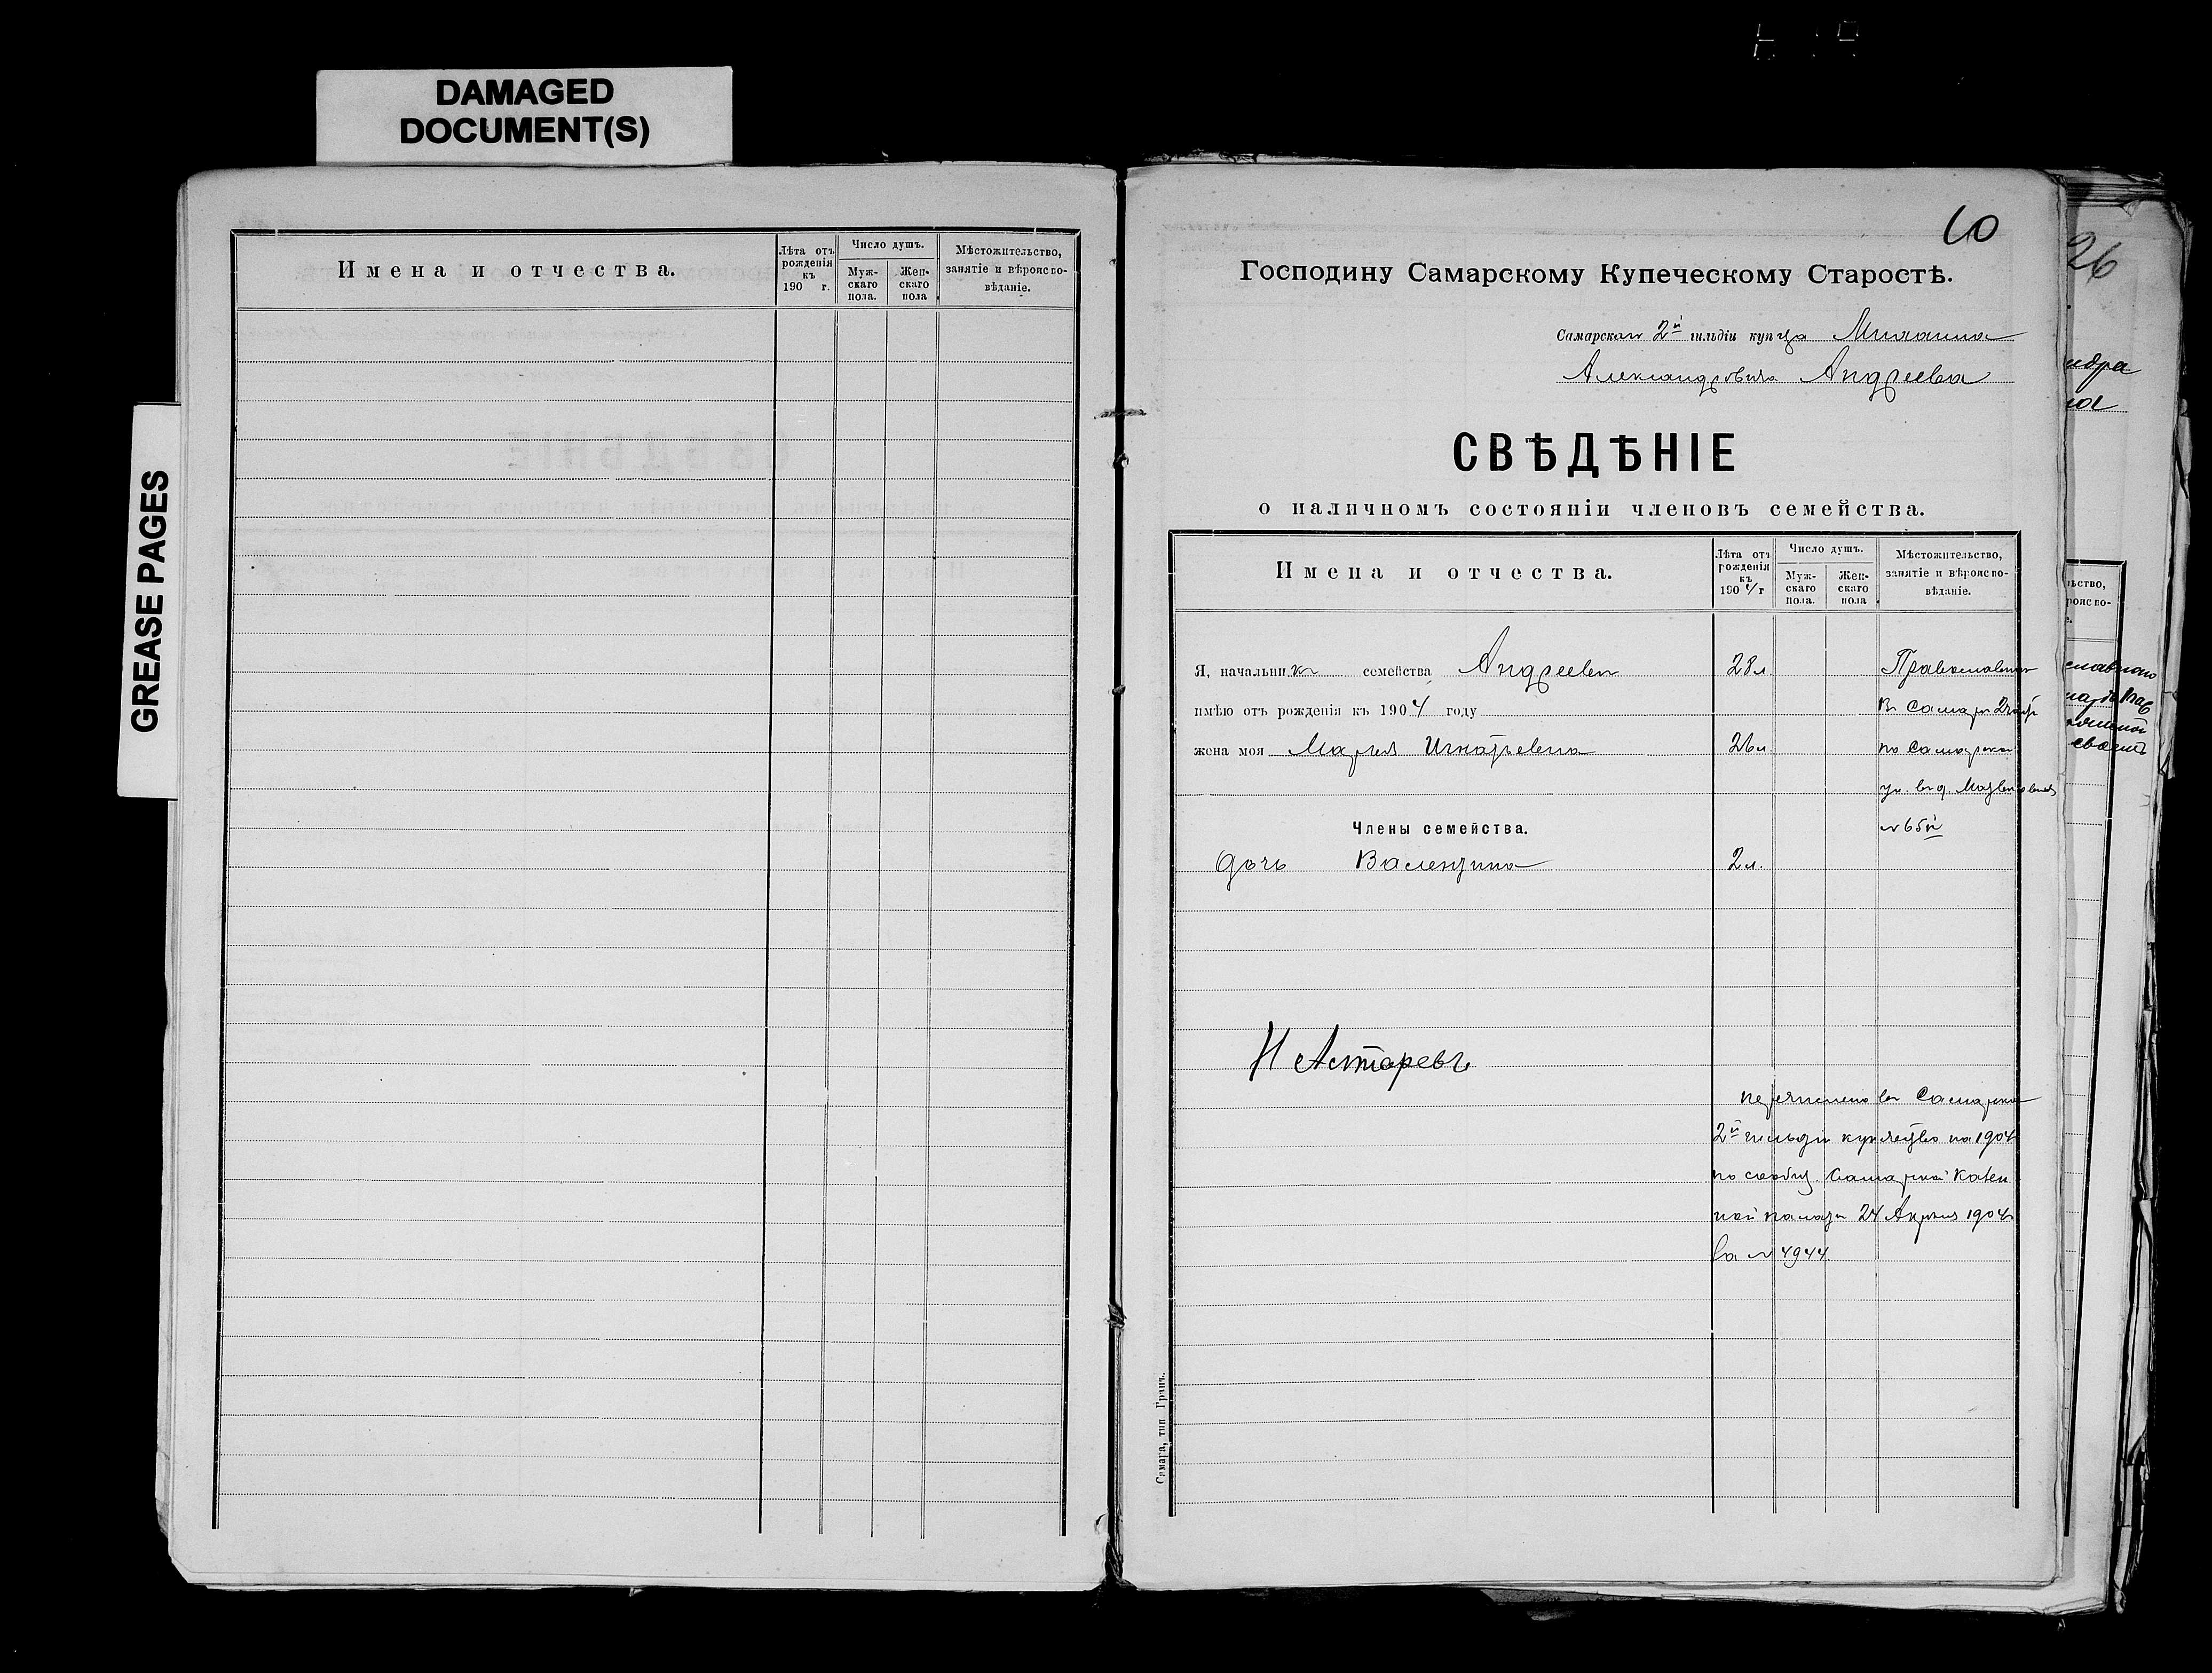 DAMAGED
DOCUMENT(S)
GREASE PAGES
Имена и отчества.
Лѣта отъ рожденія къ 190 г.
Число душъ.
Мужскаго пола.
Женскаго пола
Мѣстожительство, занятіе и вѣроисповѣданіе.
60
Господину Самарскому Купеческому Старостѣ.
Самарскаго 2й гильдіи купца Михаила
Александровича Андреева
СВѢДѢНІЕ
о наличномъ состояніи членовъ семейства.
Имена и отчества.
Лѣта отъ рожденія къ 1904 г
Число душъ.
Мужскаго пола.
Женскаго пола
Мѣстожительство, занятіе и вѣроисповѣданіе.
Я, начальникъ семейства Андреевъ 28 л. Православнаго
имѣю отъ рожденія къ 1904 году въ Самарѣ 2 части
жена моя Марія Игнатьевна 26 л. по Самарской
ул. въ д.
Члены семейства. № 65й
дочь Валентина 2 л.
перечисленъ въ Самарское
2й гильдіи купечество на 1904
по сообщ. Самарской Казен
ной палаты 24 Апрѣля 1904
за № 4944.
Самара, тип. Гранъ.
26